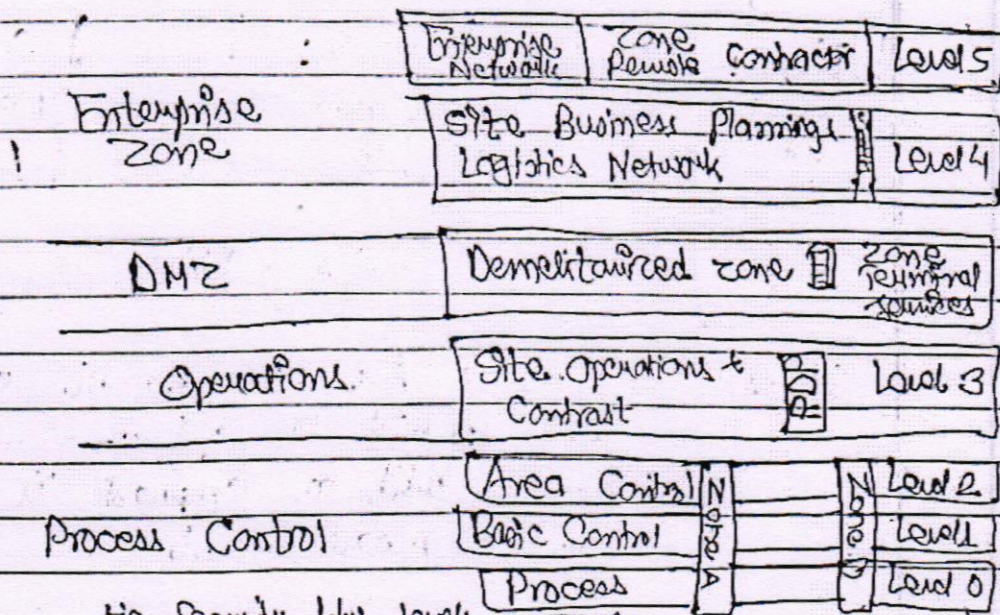 Enterprise Network
Zone Remote Contractor
Level 5
Enterprise Zone
Site Business Plannings Logistics Network
Level 4
DMZ
Demelitairized zone
Zone Terminal services
Operations.
Site Operations +
Contrast
RDP
Level 3
Process Control
Area Control
Level 2
Basic Control
Level 1
Process
Level 0
Zone A
Security
level